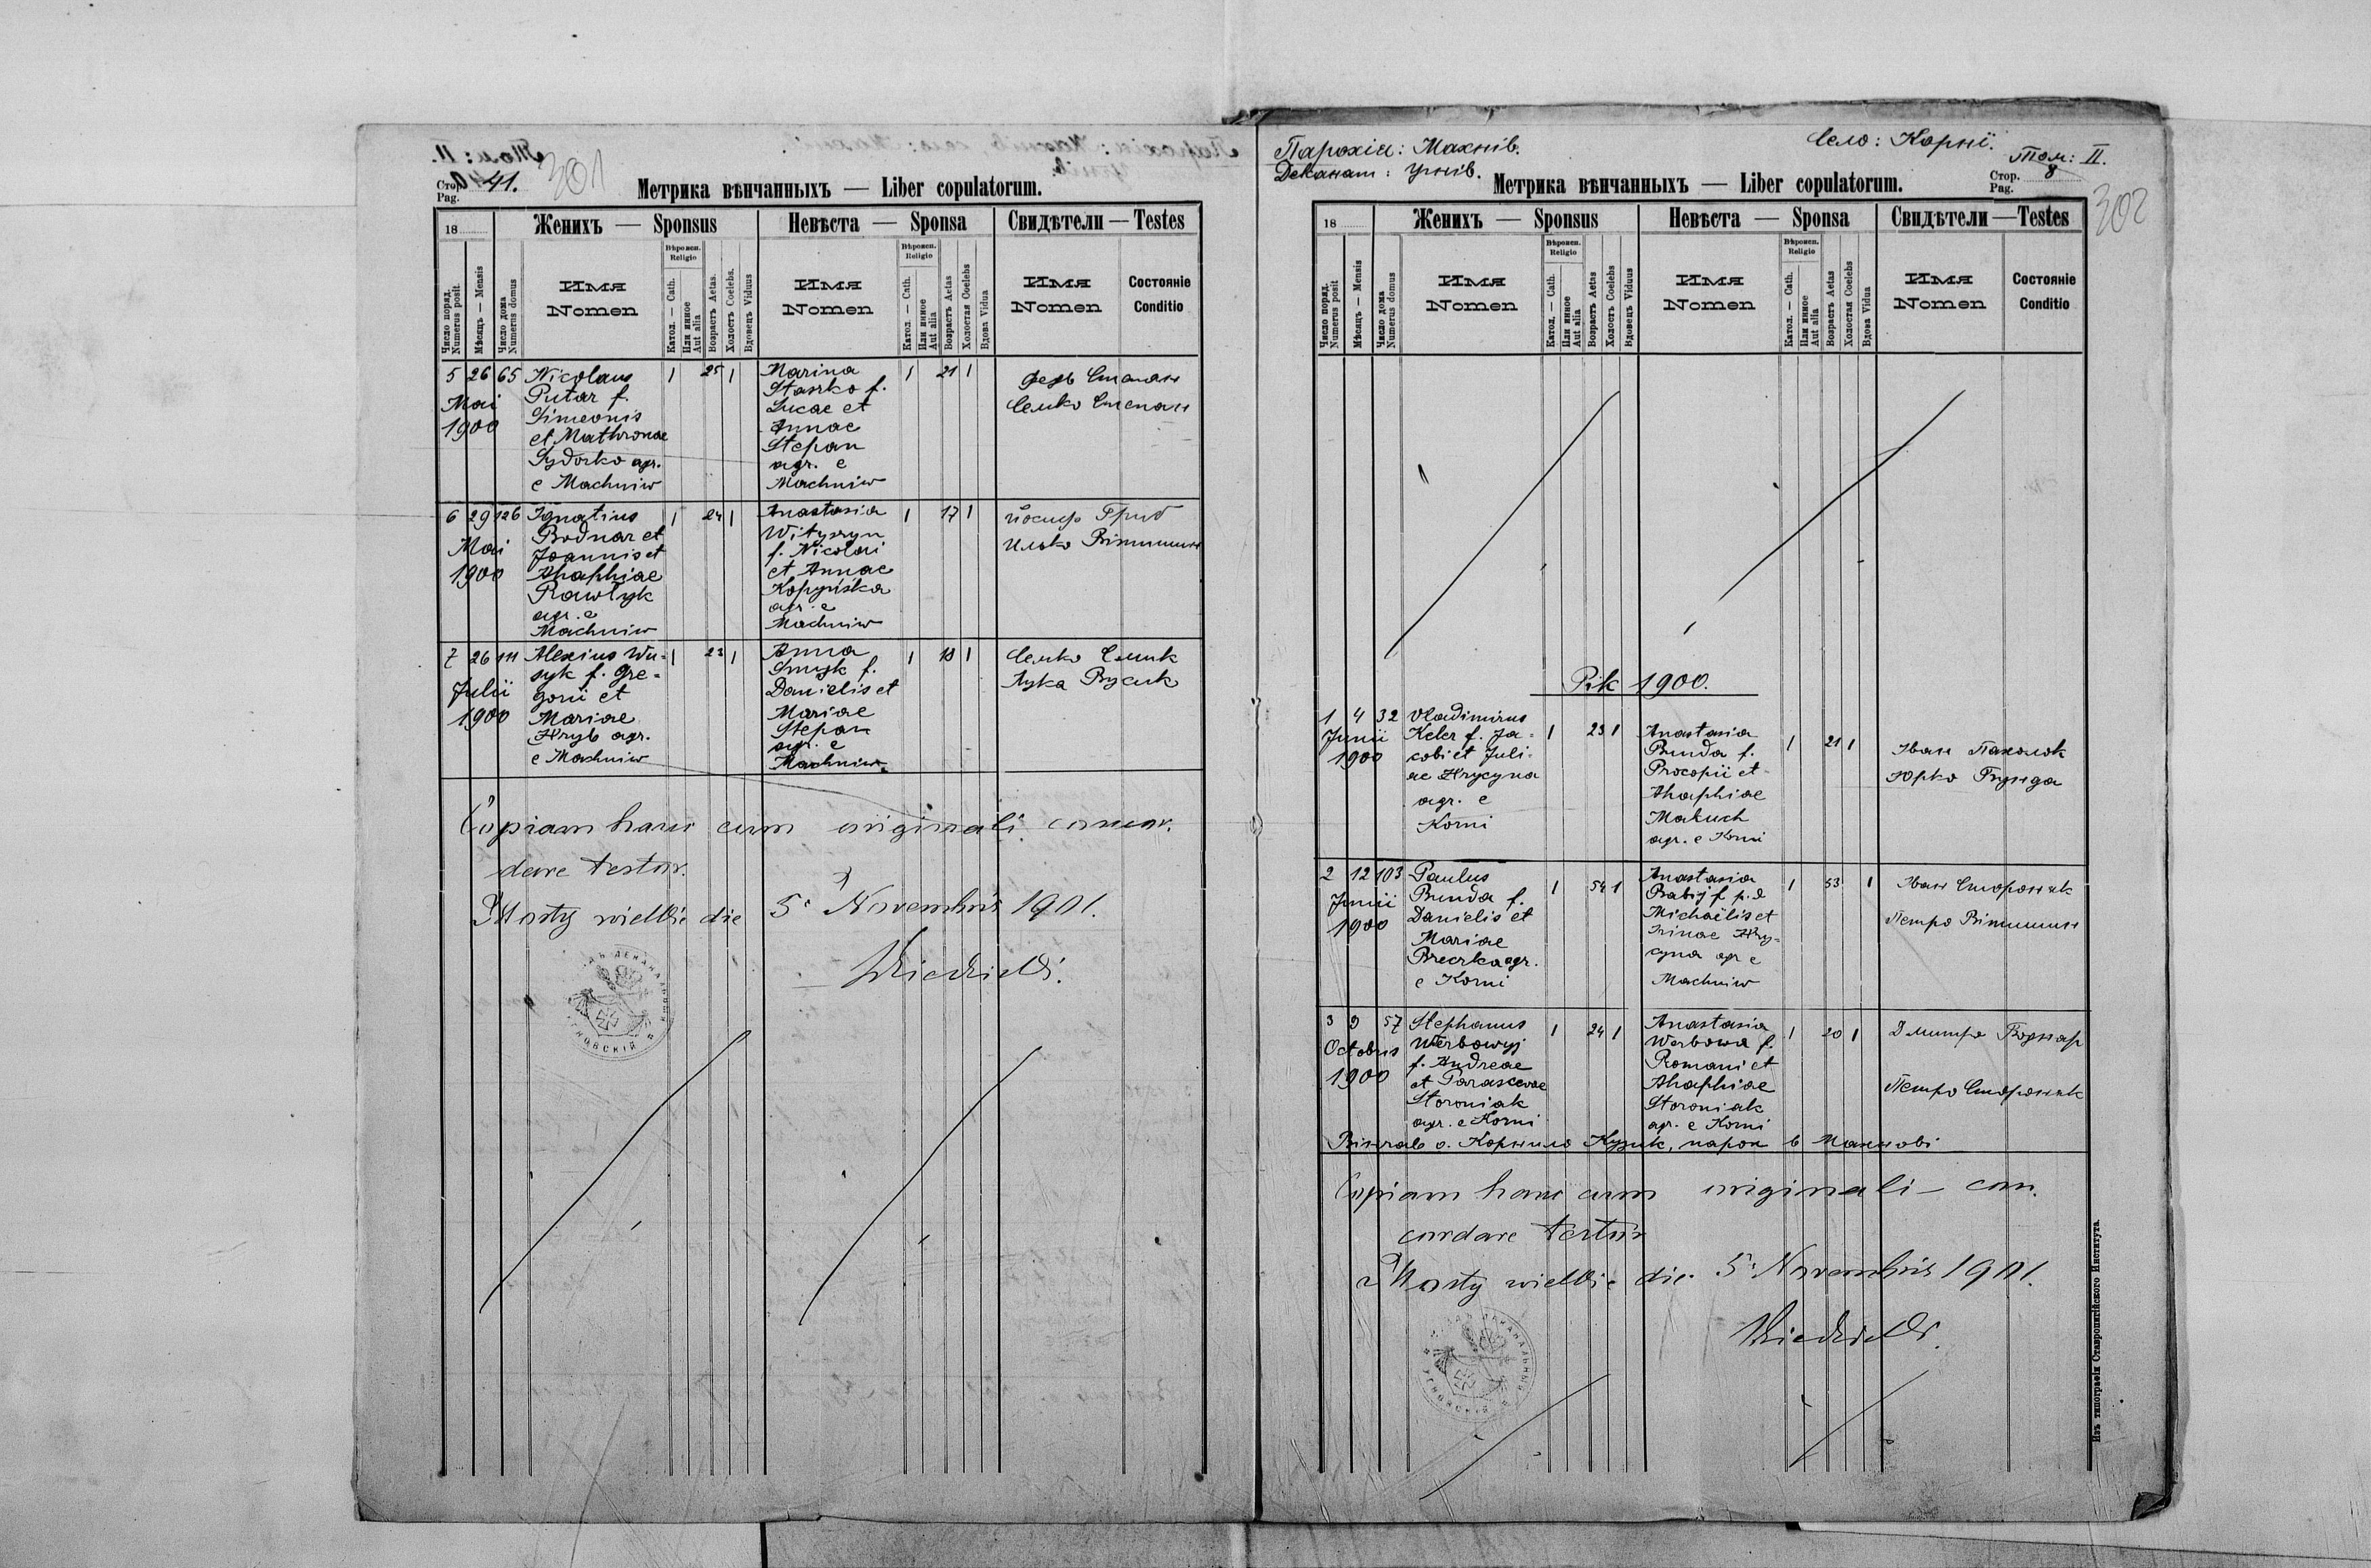 Том: II.
Стор. Pag. 41.
301
Метрика вѣнчанныхъ — Liber copulatorum.
18
Женихъ — Sponsus
Невѣста — Sponsa
Свидѣтели — Testes
Число поряд. Numerus posit
Мѣсяцъ — Mensis
Число дома Numerus domus
Имя Nomen
Вѣроисп. Religio
Катол. — Cath.
Или инное Aut alia
Возрастъ Aetas.
Холостъ Coelebs.
Вдовецъ Viduus
Имя Nomen
Вѣроисп. Religio
Катол. — Cath.
Или инное Aut alia
Возрастъ Aetas
Холостая Coelebs
Вдова Vidua
Имя Nomen
Состоянiе Conditio
5 26 65
Mai
1900
Nicolaus
Putar f.
Simeonis
et Mathronae
Sydorko agr.
e Machniw
1 25 1
Marina
Staszko f.
Lucae et
Annae
Stepan
agr. e
Machniw
1 21 1
Федь Степан
Семко Степан
6 29 126
Mai
1900
Ignatius
Bodnar et
Joannis et
Ahaphiae
Pawlyk
agr. e
Machniw
1 24 1
Anastasia
Wityszyn
f. Nicolai
et Annae
Kopyńska
agr. e
Machniw
1 17 1
Йосиф Гриб
Илько Вітишин
7 26 111
Julii
1900
Alexius Wu-
syk f. Gre-
gorii et
Mariae
Hryb agr.
e Machniw
1 23 1
Anna
Smyk f.
Danielis et
Mariae
Stepan
agr. e
Machniw
1 18 1
Семко Смик
Лука Вусик
Copiam hanc cum originali concor-
dare testor.
Mosty wielkie die 5. Novembris 1901.
Парохія: Махнів.
Деканат: Угнів.
Село: Корні.
Том: II.
Стор. Pag. 8
302
Метрика вѣнчанныхъ — Liber copulatorum.
18
Женихъ — Sponsus
Невѣста — Sponsa
Свидѣтели — Testes
Число поряд. Numerus posit
Мѣсяцъ — Mensis
Число дома Numerus domus
Имя Nomen
Вѣроисп. Religio
Катол. — Cath.
Или инное Aut alia
Возрастъ Aetas
Холостъ Coelebs
Вдовецъ Viduus
Имя Nomen
Вѣроисп. Religio
Катол. — Cath.
Или инное Aut alia
Возрастъ Aetas
Холостая Coelebs
Вдова Vidua
Имя Nomen
Состоянiе Conditio
Рік 1900.
1 4 32
Junii
1900
Vladimirus
Keler f. Ja-
cobi et Juli-
ae Hrycyna
agr. e
Korni
1 23 1
Anastasia
Bunda f.
Procopii et
Ahaphiae
Makuch
agr. e Korni
1 21 1
Іван Пахолок
Юрко Бунда
2 12 103
Junii
1900
Paulus
Bunda f.
Danielis et
Mariae
Breczka agr.
e Korni
1 54 1
Anastasia
Babij f. p.d
Michaëlis et
Irinae Hry-
cyna agr e
Machniw
1 53 1
Іван Стороняк
Петро Вітишин
3 9 57
Octobris
1900
Stephanus
Werbowyj
f. Andreae
et Parascevae
Storoniak
agr. e Korni
1 24 1
Anastasia
Werbowa f.
Romani et
Ahaphiae
Storoniak
agr. e Korni
1 20 1
Дмитро Боднар
Петро Стороняк
Вінчав о. Корнило Кузик, парох в Махнові
Copiam hanc cum originali con-
cordare testor
Mosty wielkie die 5. Novembris 1901.
Изъ типографiи Ставропигiйского Института.